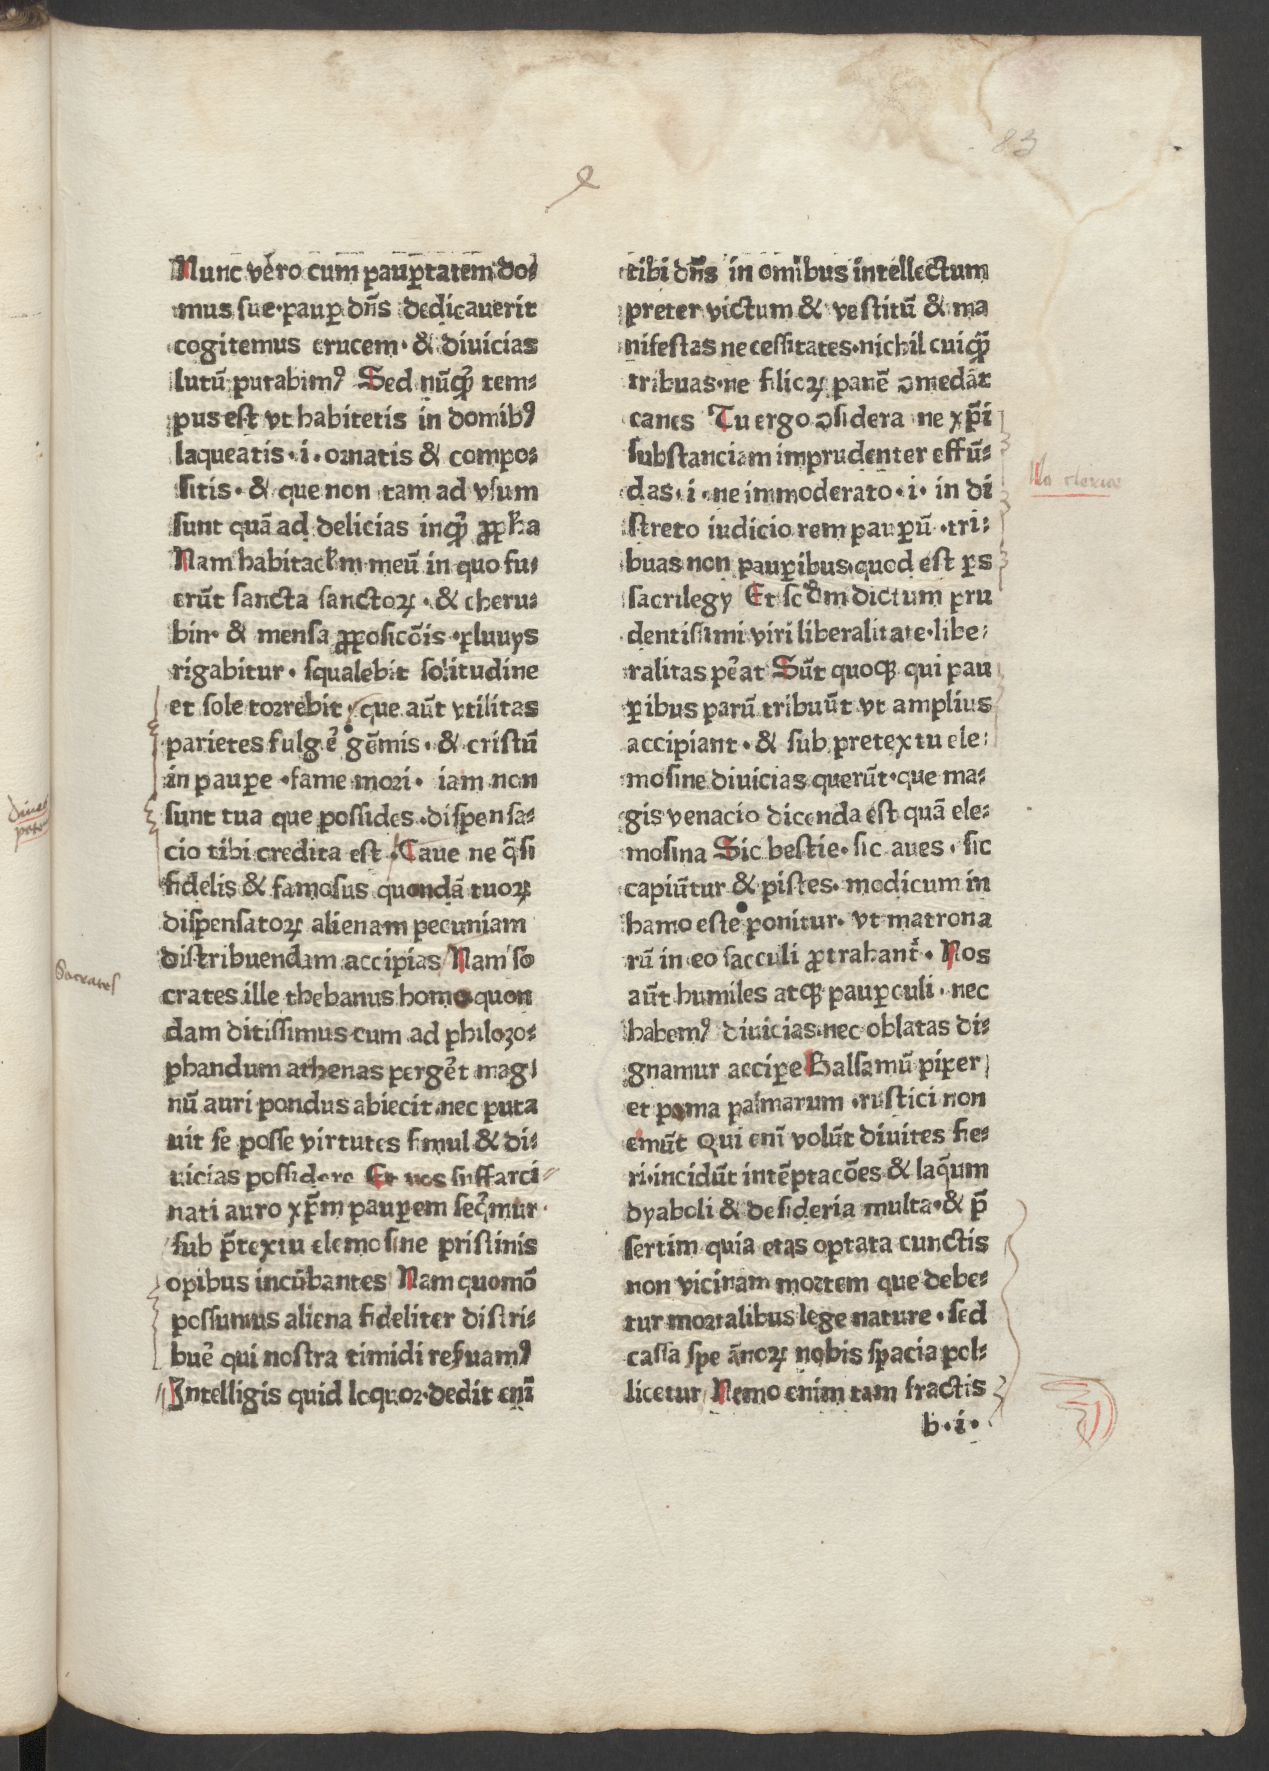 83
Nunc vero cum paupꝑtatem do⸗
mus sue·paup dn̄s dedicauerit
cogitemus crucem·& diuicias
lutū putabimꝰ Sed nūqͣ tem⸗
pus est vt habitetis in domibꝰ
laqueatis·i·ornatis & compo⸗
sitis·& que non tam ad vsum
sunt quā ad delicias inqͣ ꝓpha
Nam habitacl'm meū in quo fu⸗
erūt sancta sanctoꝝ·& cheru⸗
bin·& mensa ꝓposicōis·pluuys
rigabitur·squalebit solitudine
et sole torrebit·que aūt vtilitas
parietes fulgē gēmis·& cristū
in paupe·fame mori·iam non
sunt tua que possides·dispensa⸗
cio tibi credita est·Caue ne q̄si
fidelis & famosus quondā tuoꝝ
dispensatoꝝ alienam pecuniam
distribuendam accipias Nam so
crates ille thebanus homo quon
dam ditissimus cum ad philozo⸗
phandum athenas pergēt mag⸗
nū auri pondus abiecit·nec puta
uit se posse virtutes simul & di⸗
uicias possidere Et nos suffarci
nati auro xp̄m paupem seq̄mur·
sub p̄textu elemosine pristinis
opibus incūbantes Nam quomō
possumus aliena fideliter distri⸗
buē qui nostra timidi reẛuamꝰ
Intelligis quid loquor·dedit enī
tibi dn̄s in omībus intellectum
preter victum & vestitū & ma
nifestas necessitates·nichil cuiqͣ
tribuas·ne filioꝝ panē ꝯmedāt
canes Tu ergo ꝯsidera ne xp̄i
substanciam imprudenter effū⸗
das·i·ne immoderato·i·in di
streto iudicio rem paupū·tri⸗
buas non paupibus·quod est ꝑs
sacrilegy Et scd̄m dictum pru
dentissimi viri liberalitate·libe⸗
ralitas pēat Sūt quoqꝫ qui pau
ꝑibus parū tribuūt vt amplius
accipiant·& sub pretextu ele⸗
mosine diuicias querūt·que ma⸗
gis venacio dicenda est quā ele⸗
mosina Sic bestie·sic aues·sic
capiūtur & pistes·modicum in
hamo este ponitur·vt matrona
rū in eo sacculi ꝓtrahant᷑·Nos
aūt humiles atqꝫ pauꝑculi·nec
habemꝰ diuicias·nec oblatas di⸗
gnamur accipe Balsamū piper
et poma palmarum·rustici non
emūt Qui enī volūt diuites fie⸗
ri·incidūt intēptacōes & laq̄um
dyaboli & desideria multa·& p̄
sertim quia etas optata cunctis
non vicinam mortem que debe⸗
tur mortalibus lege nature·sed
cassa spe ānoꝝ nobis spacia pol⸗
licetur Nemo enim tam fractis
b·i·
Socrates